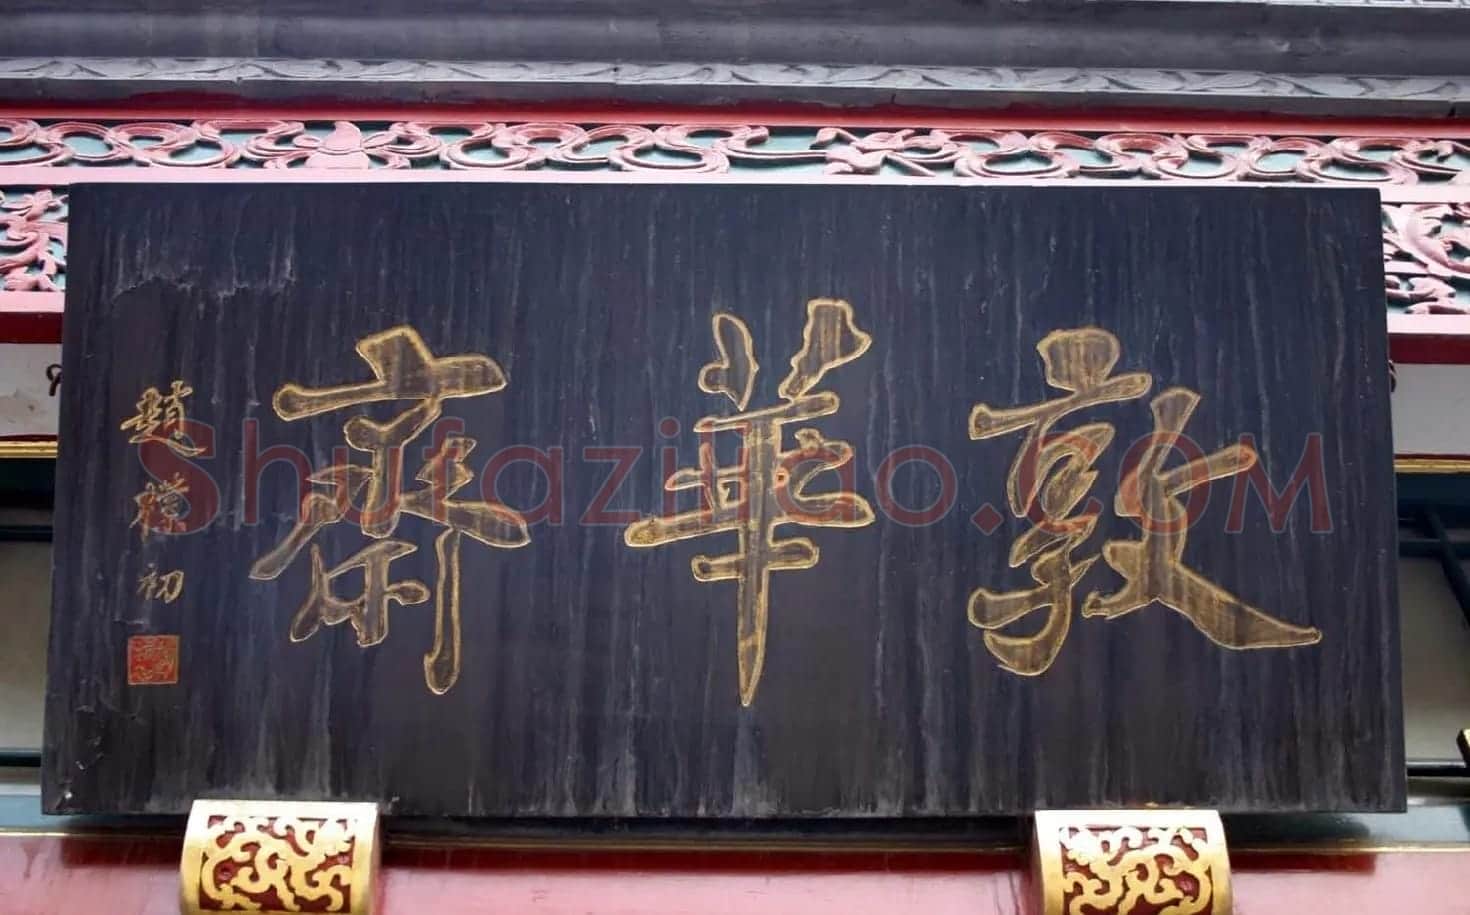 敦華齋
趙樸初
Shufaziliao.COM